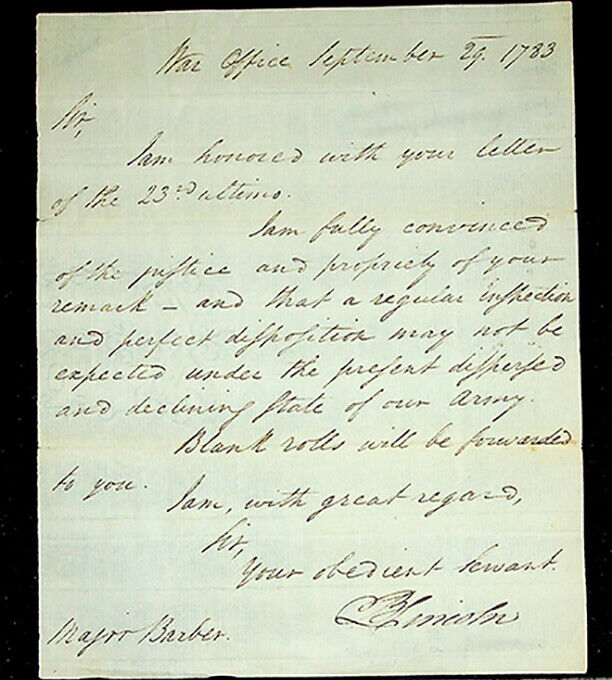 War Office September 29. 1783
Sir,
I am honored with your letter
of the 23.d ultimo.
I am fully convinced
of the justice and propriety of your
remark – and that a regular inspection
and perfect disposition may not be
expected under the present dispersed
and declining state of our Army.
Blank rolls will be forwarded
to you.
I am, with great regard,
Sir,
Your obedient Servant.
B Lincoln
Major Barber.